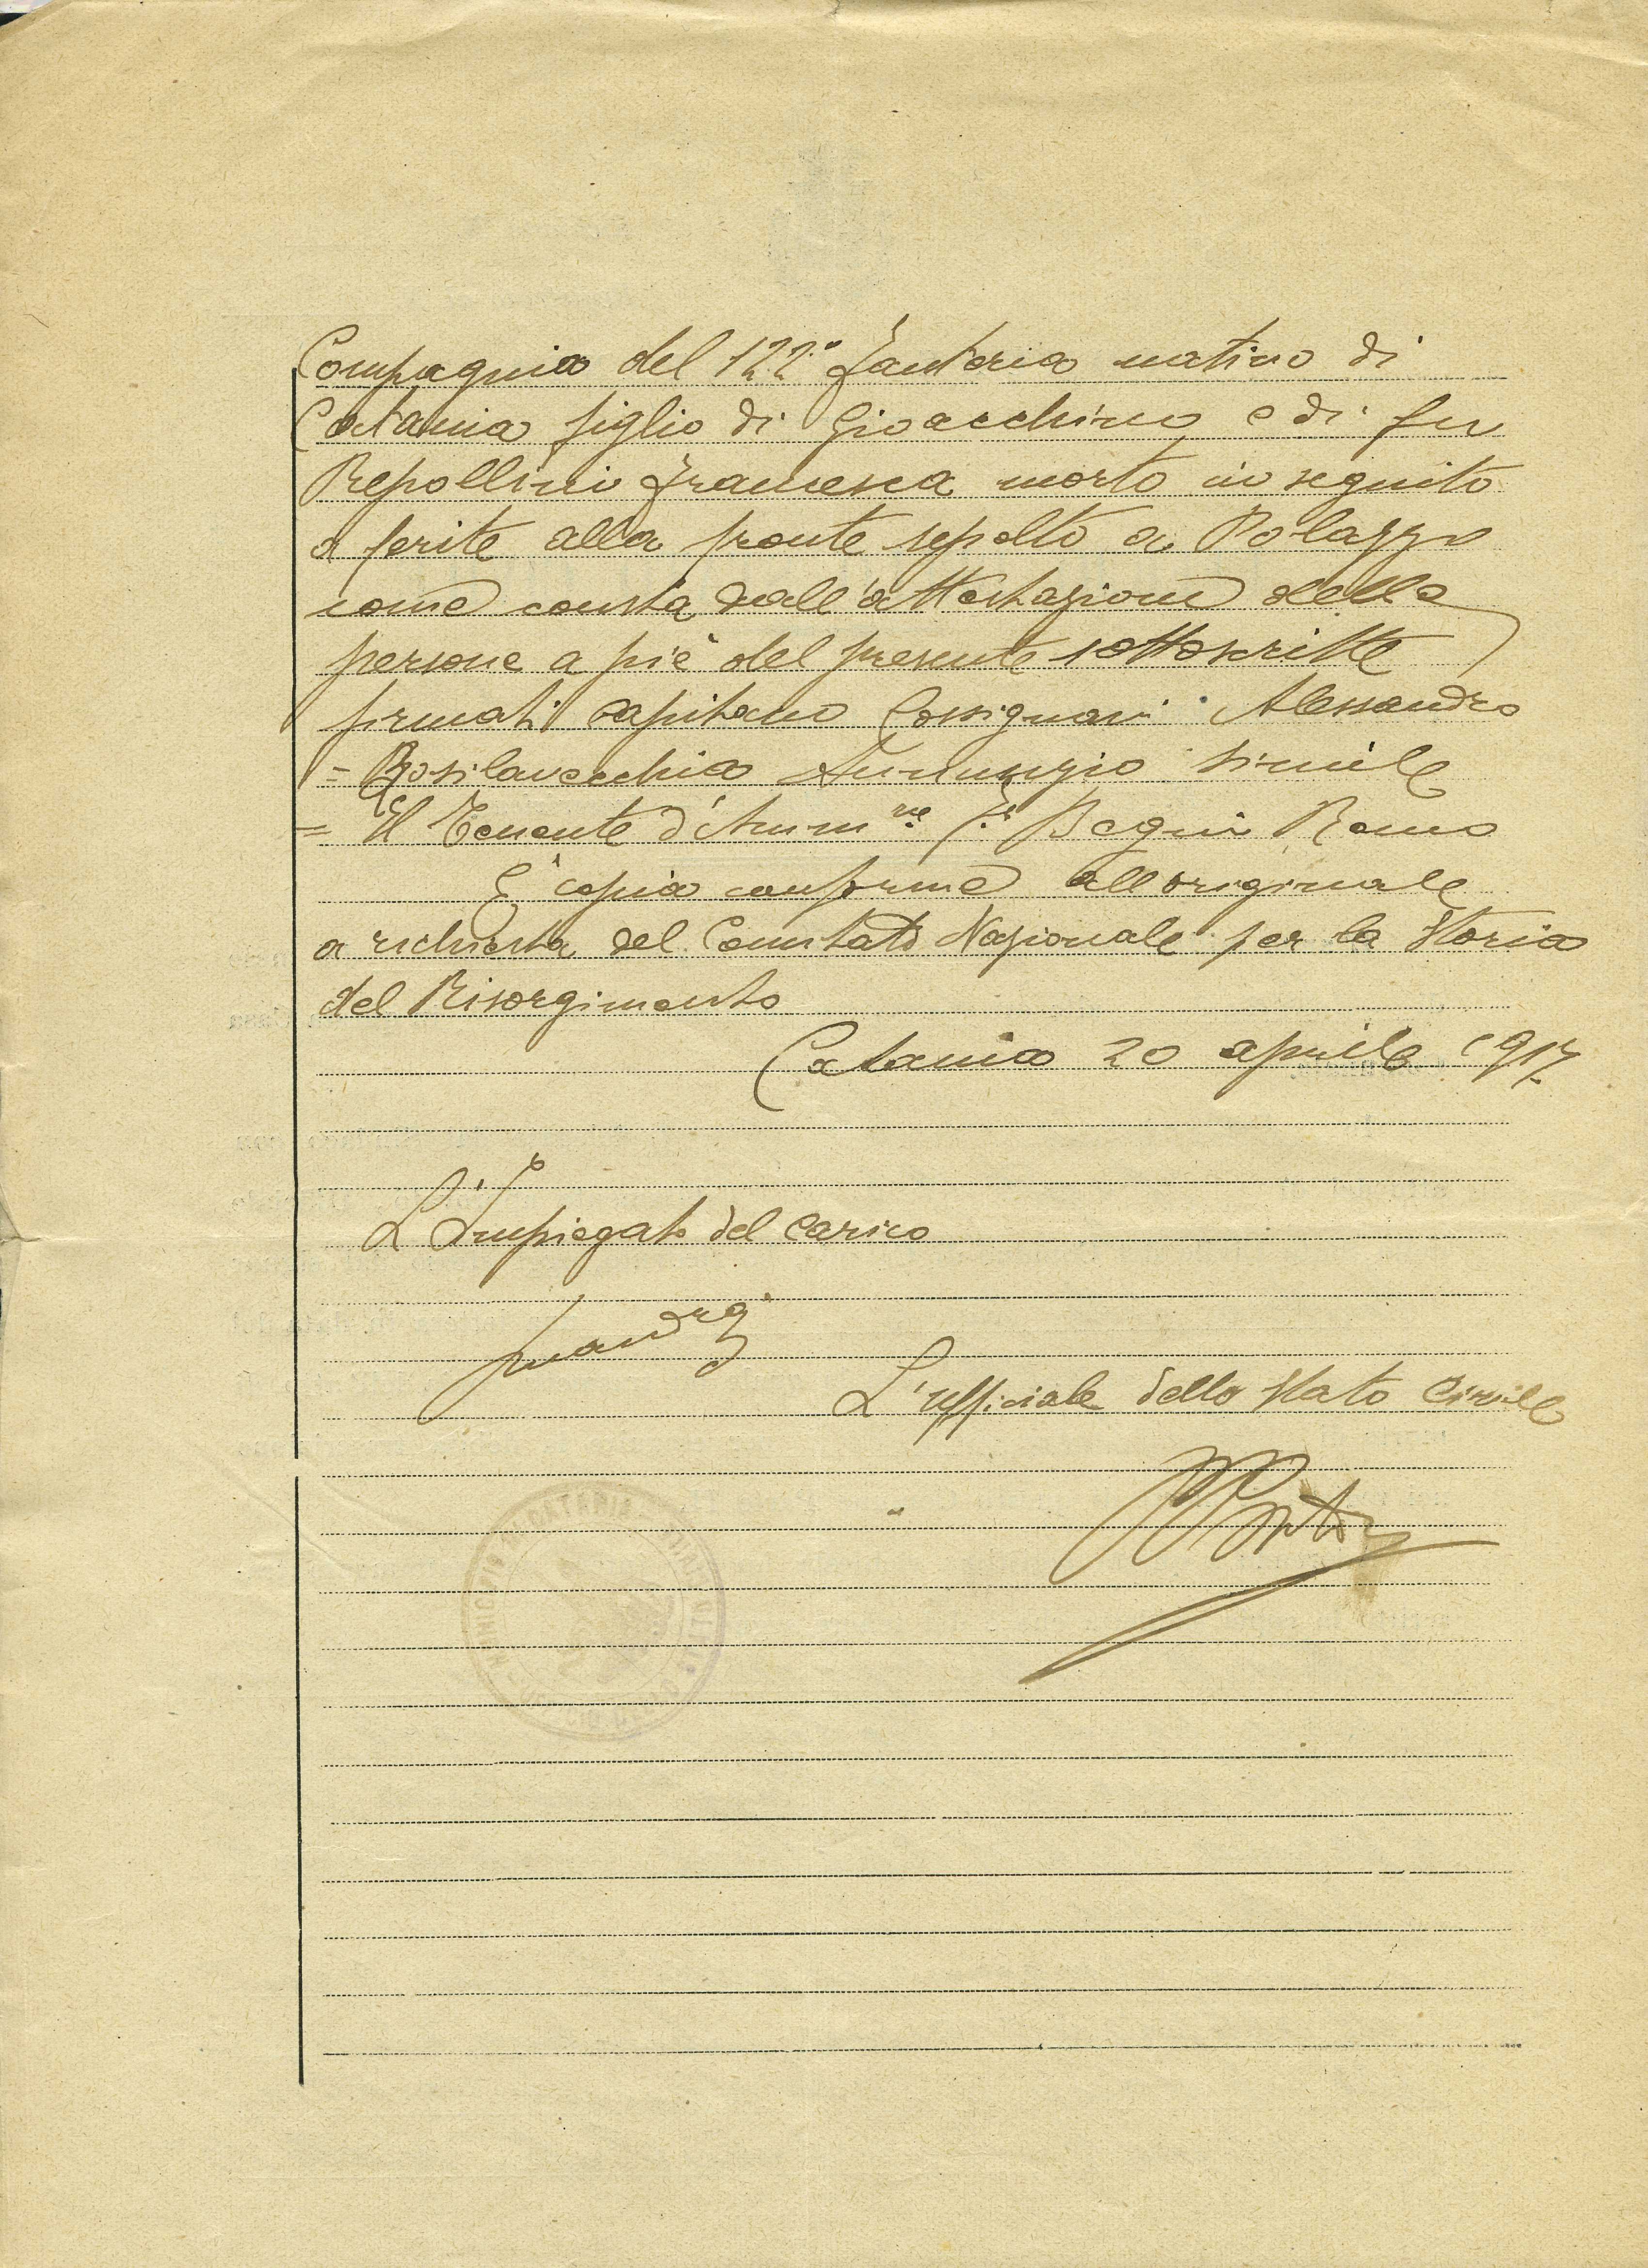 Compagnia del 122° Fanteria nativo di
Catania figlio di Gioacchino e di fu
Repollini Francesca morto in seguito
a ferite alla fronte sepolto a Polazzo
come consta dall'attestazione delle
persone a piè del presente sottoscritte
firmati capitano Cossignani Alessandro
= Annunzio simile
= Il Tenente d'Amm.ne F.to Begni Remo
E' copia conforme all'originale
a richiesta del Comitato Nazionale per la Storia
del Risorgimento
Catania 20 aprile 1917
L'Impiegato del carico
L'ufficiale dello Stato Civile